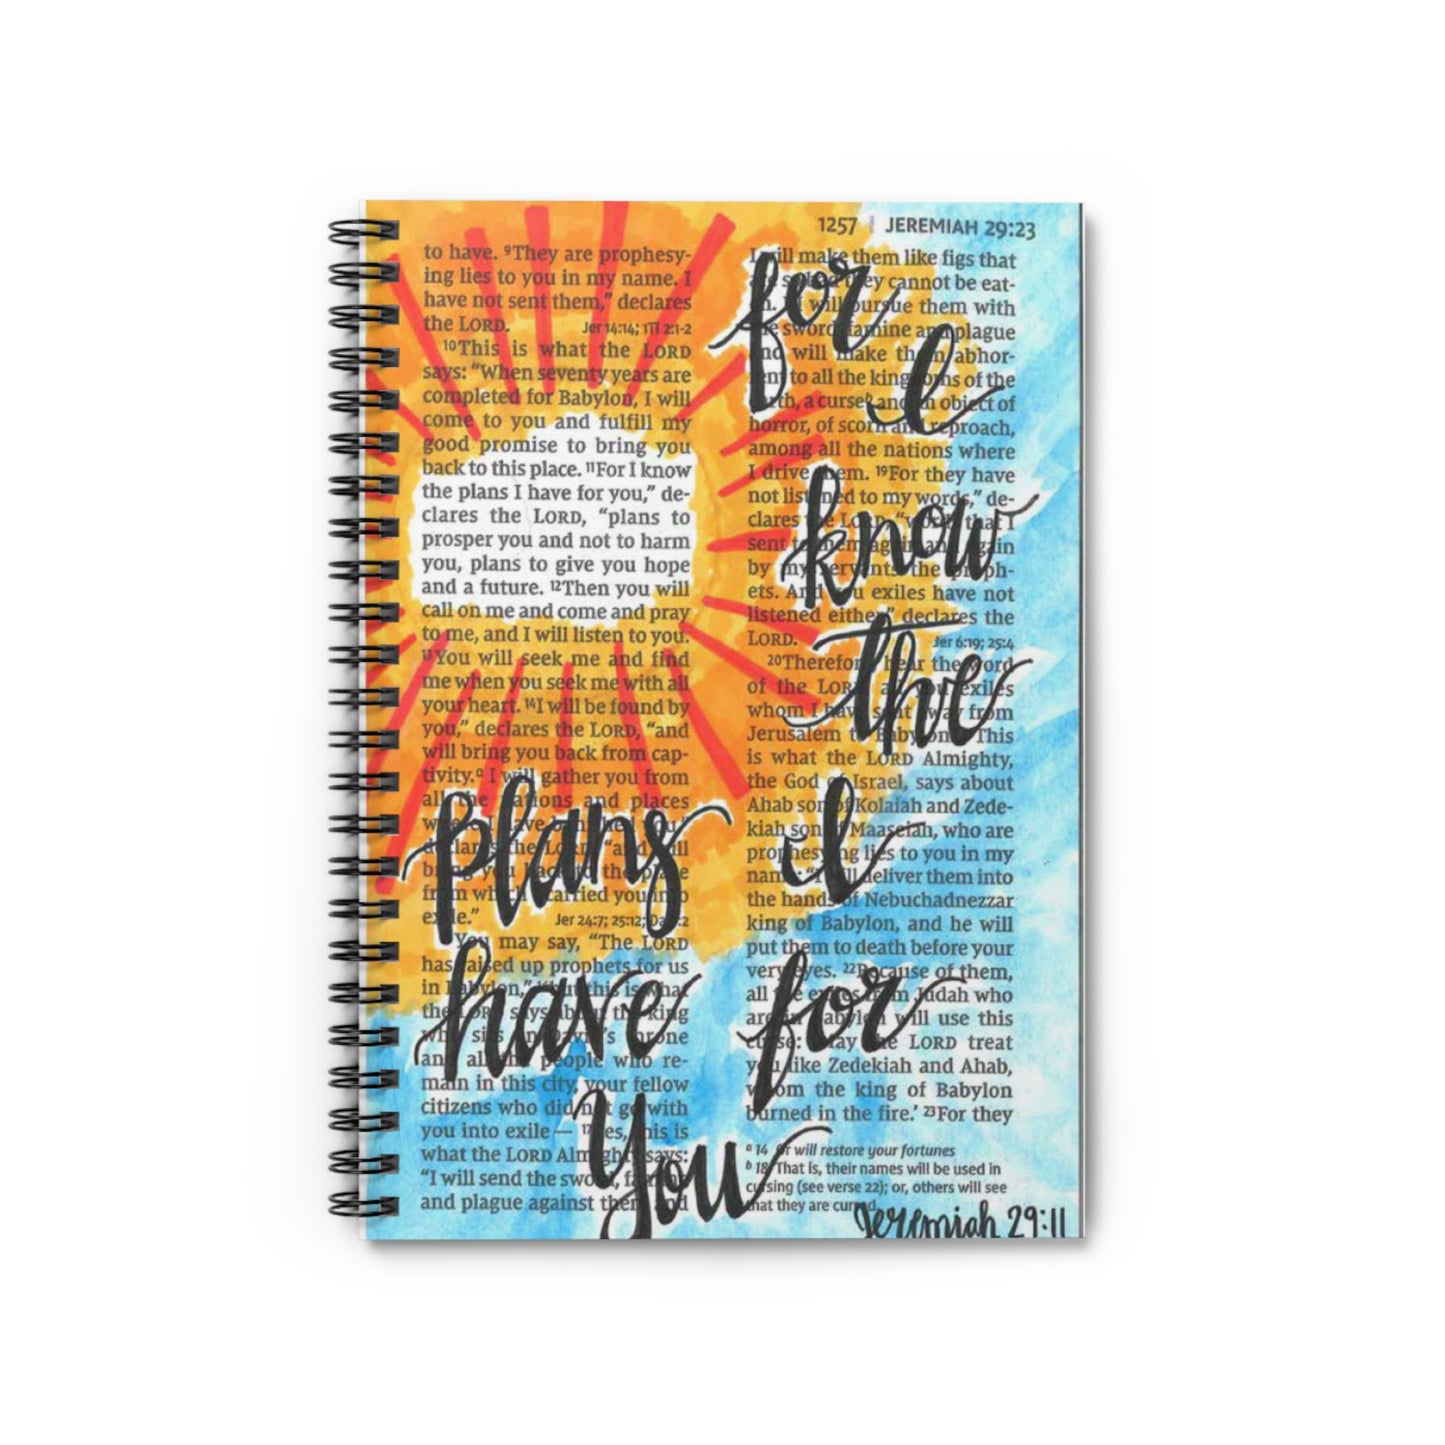 1257 | JEREMIAH 29:23
to have. ⁹They are prophesy-
ing lies to you in my name. I
have not sent them,” declares
the LORD. Jer 14:14; 1Ti 2:1-2
¹⁰This is what the LORD
says: “When seventy years are
completed for Babylon, I will
come to you and fulfill my
good promise to bring you
back to this place. ¹¹For I know
the plans I have for you,” de-
clares the LORD, “plans to
prosper you and not to harm
you, plans to give you hope
and a future. ¹²Then you will
call on me and come and pray
to me, and I will listen to you.
¹³You will seek me and find
me when you seek me with all
your heart. ¹⁴I will be found by
you,” declares the LORD, “and
will bring you back from cap-
tivity.ᵃ I will gather you from
all the nations and places
where I have banished you,”
declares the LORD, “and will
bring you back to the place
from which I carried you into
exile.” Jer 24:7; 25:12;
You may say, “The LORD
has raised up prophets for us
in Babylon,” but this is what
the LORD says about the king
who sits on David’s throne
and all the people who re-
main in this city, your fellow
citizens who did not go with
you into exile— ¹⁷yes, this is
what the LORD Almighty says:
“I will send the sword, famine
and plague against them and
I will make them like figs that
are so bad they cannot be eat-
en. I will pursue them with
the sword, famine and plague
and will make them abhor-
rent to all the kingdoms of the
earth, a curseᵇ and an object of
horror, of scorn and reproach,
among all the nations where
I drive them. ¹⁹For they have
not listened to my words,” de-
clares the LORD, “words that I
sent to them again and again
by my servants the proph-
ets. And you exiles have not
listened either,” declares the
LORD. Jer 6:19; 25:4
²⁰Therefore, hear the word
of the LORD, all you exiles
whom I have sent away from
Jerusalem to Babylon. This
is what the LORD Almighty,
the God of Israel, says about
Ahab son of Kolaiah and Zede-
kiah son of Maaseiah, who are
prophesying lies to you in my
name: “I will deliver them into
the hands of Nebuchadnezzar
king of Babylon, and he will
put them to death before your
very eyes. ²²Because of them,
all the exiles from Judah who
are in Babylon will use this
curse: ‘May the LORD treat
you like Zedekiah and Ahab,
whom the king of Babylon
burned in the fire.’ ²³For they
ᵃ 14 Or will restore your fortunes
ᵇ 18 That is, their names will be used in
cursing (see verse 22); or, others will see
that they are cursed.
for
I
know
the
plans I
have for
you
Jeremiah 29:11